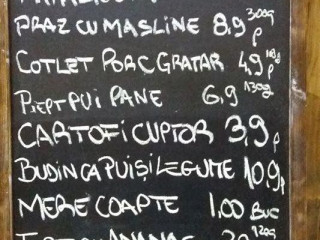 PRAZ CU MASLINE 8,9 300g P
COTLET PORC GRATAR 4,9 P
PIEPT PUI PANE 6,9 130g
CARTOFI CUPTOR 3,9 P
BUDINCA PUI ȘI LEGUME 10,9 P
MERE COAPTE 1,00 BUC